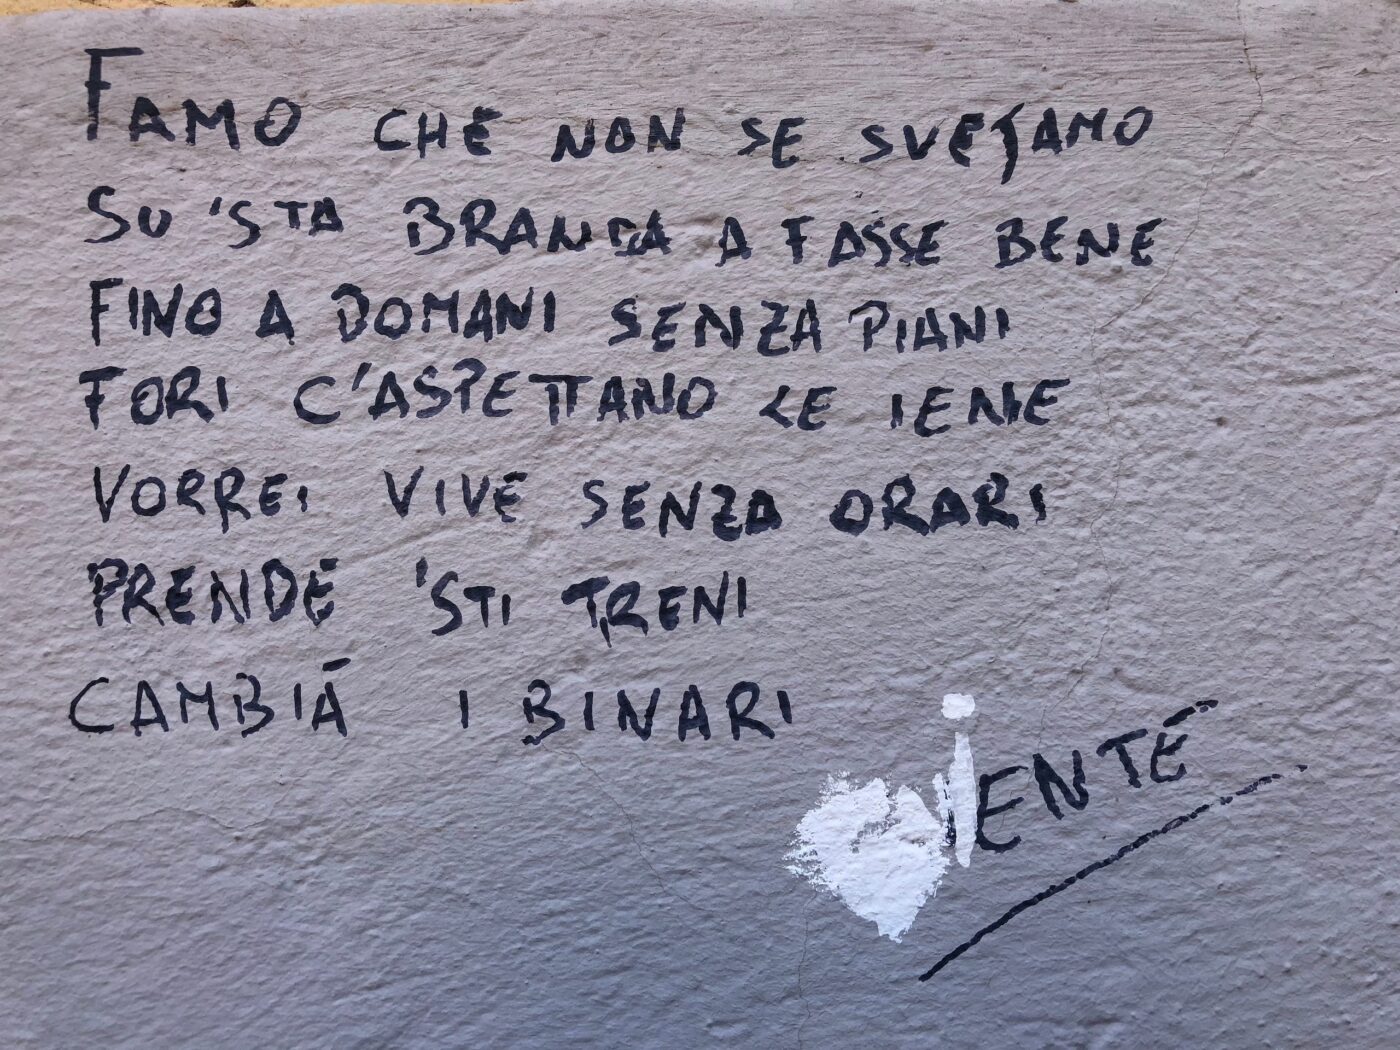 FAMO CHE NON SE SVEJAMO
SU 'STA BRANDA A FASSE BENE
FINO A DOMANI SENZA PIANI
FORI C'ASPETTANO LE IENE
VORREI VIVE SENZA ORARI
PRENDE 'STI TRENI
CAMBIÀ I BINARI
iENTE